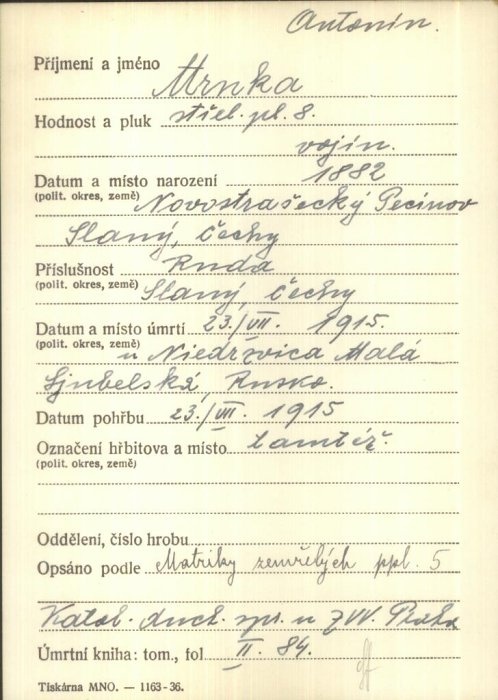 Antonín.
Příjmení a jméno Mrnka
Hodnost a pluk střel. pl. 8.
vojín.
Datum a místo narození 1882
(polit. okres, země) Novostrašecký Pecínov
Slaný, Čechy
Příslušnost Ruda
(polit. okres, země) Slaný, Čechy
Datum a místo úmrtí 23./VII. 1915.
(polit. okres, země) u Niedrzvica Malá
Ljubelská, Rusko.
Datum pohřbu 23./VII. 1915
Označení hřbitova a místo tamtéž.
(polit. okres, země)
Oddělení, číslo hrobu
Opsáno podle Matriky zemřelých ppl. 5
Katol. duch. spr. u ZVV. Praha
Úmrtní kniha: tom., fol II. 84.
Tiskárna MNO. — 1163-36.